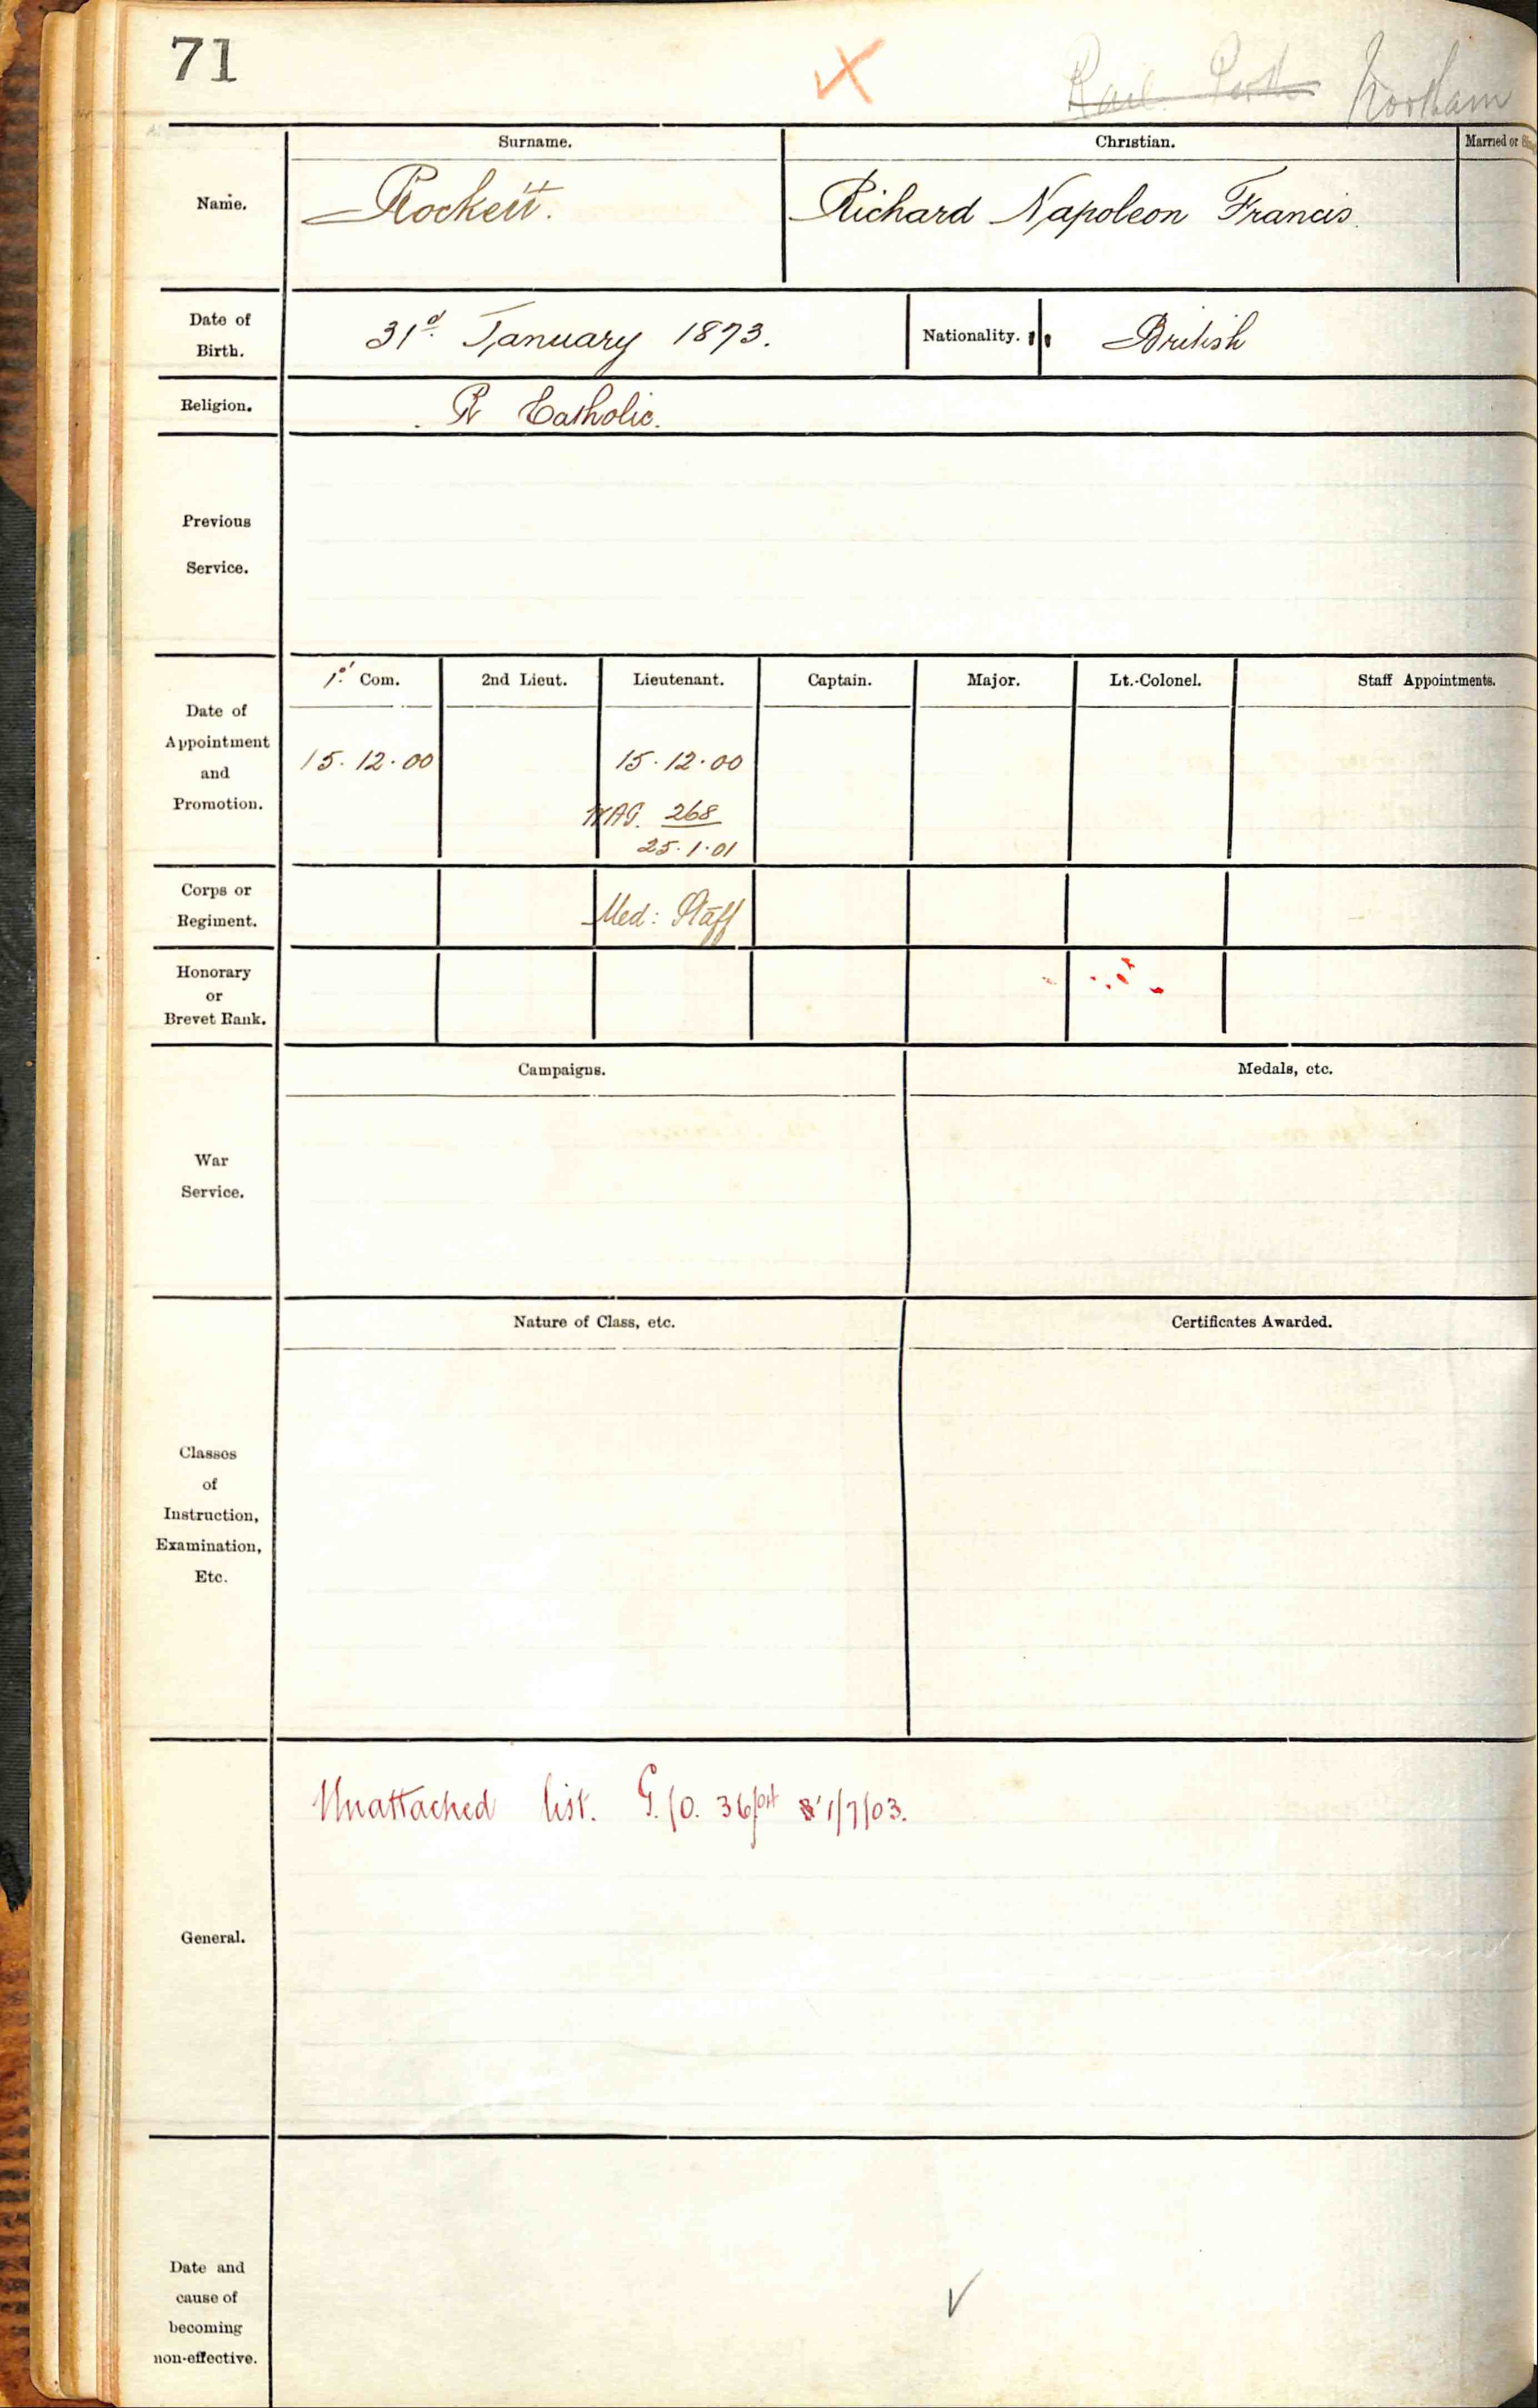 71
Rail Perth Northam
Surname. Christian. Married or
Name. Rockett. Richard Napoleon Francis.
Date of Birth. 31st January 1873. Nationality. British
Religion. R Catholic.
Previous
Service.
1st Com. 2nd Lieut. Lieutenant. Captain. Major. Lt.-Colonel. Staff Appointments.
Date of
Appointment
and
Promotion.
15.12.00 15.12.00
WAG. 268
25.1.01
Corps or
Regiment. Med: Staff
Honorary
or
Brevet Rank.
Campaigns. Medals, etc.
War
Service.
Nature of Class, etc. Certificates Awarded.
Classes
of
Instruction,
Examination,
Etc.
Unattached list. G.O. 36/03 1/7/03.
General.
Date and
cause of
becoming
non-effective.